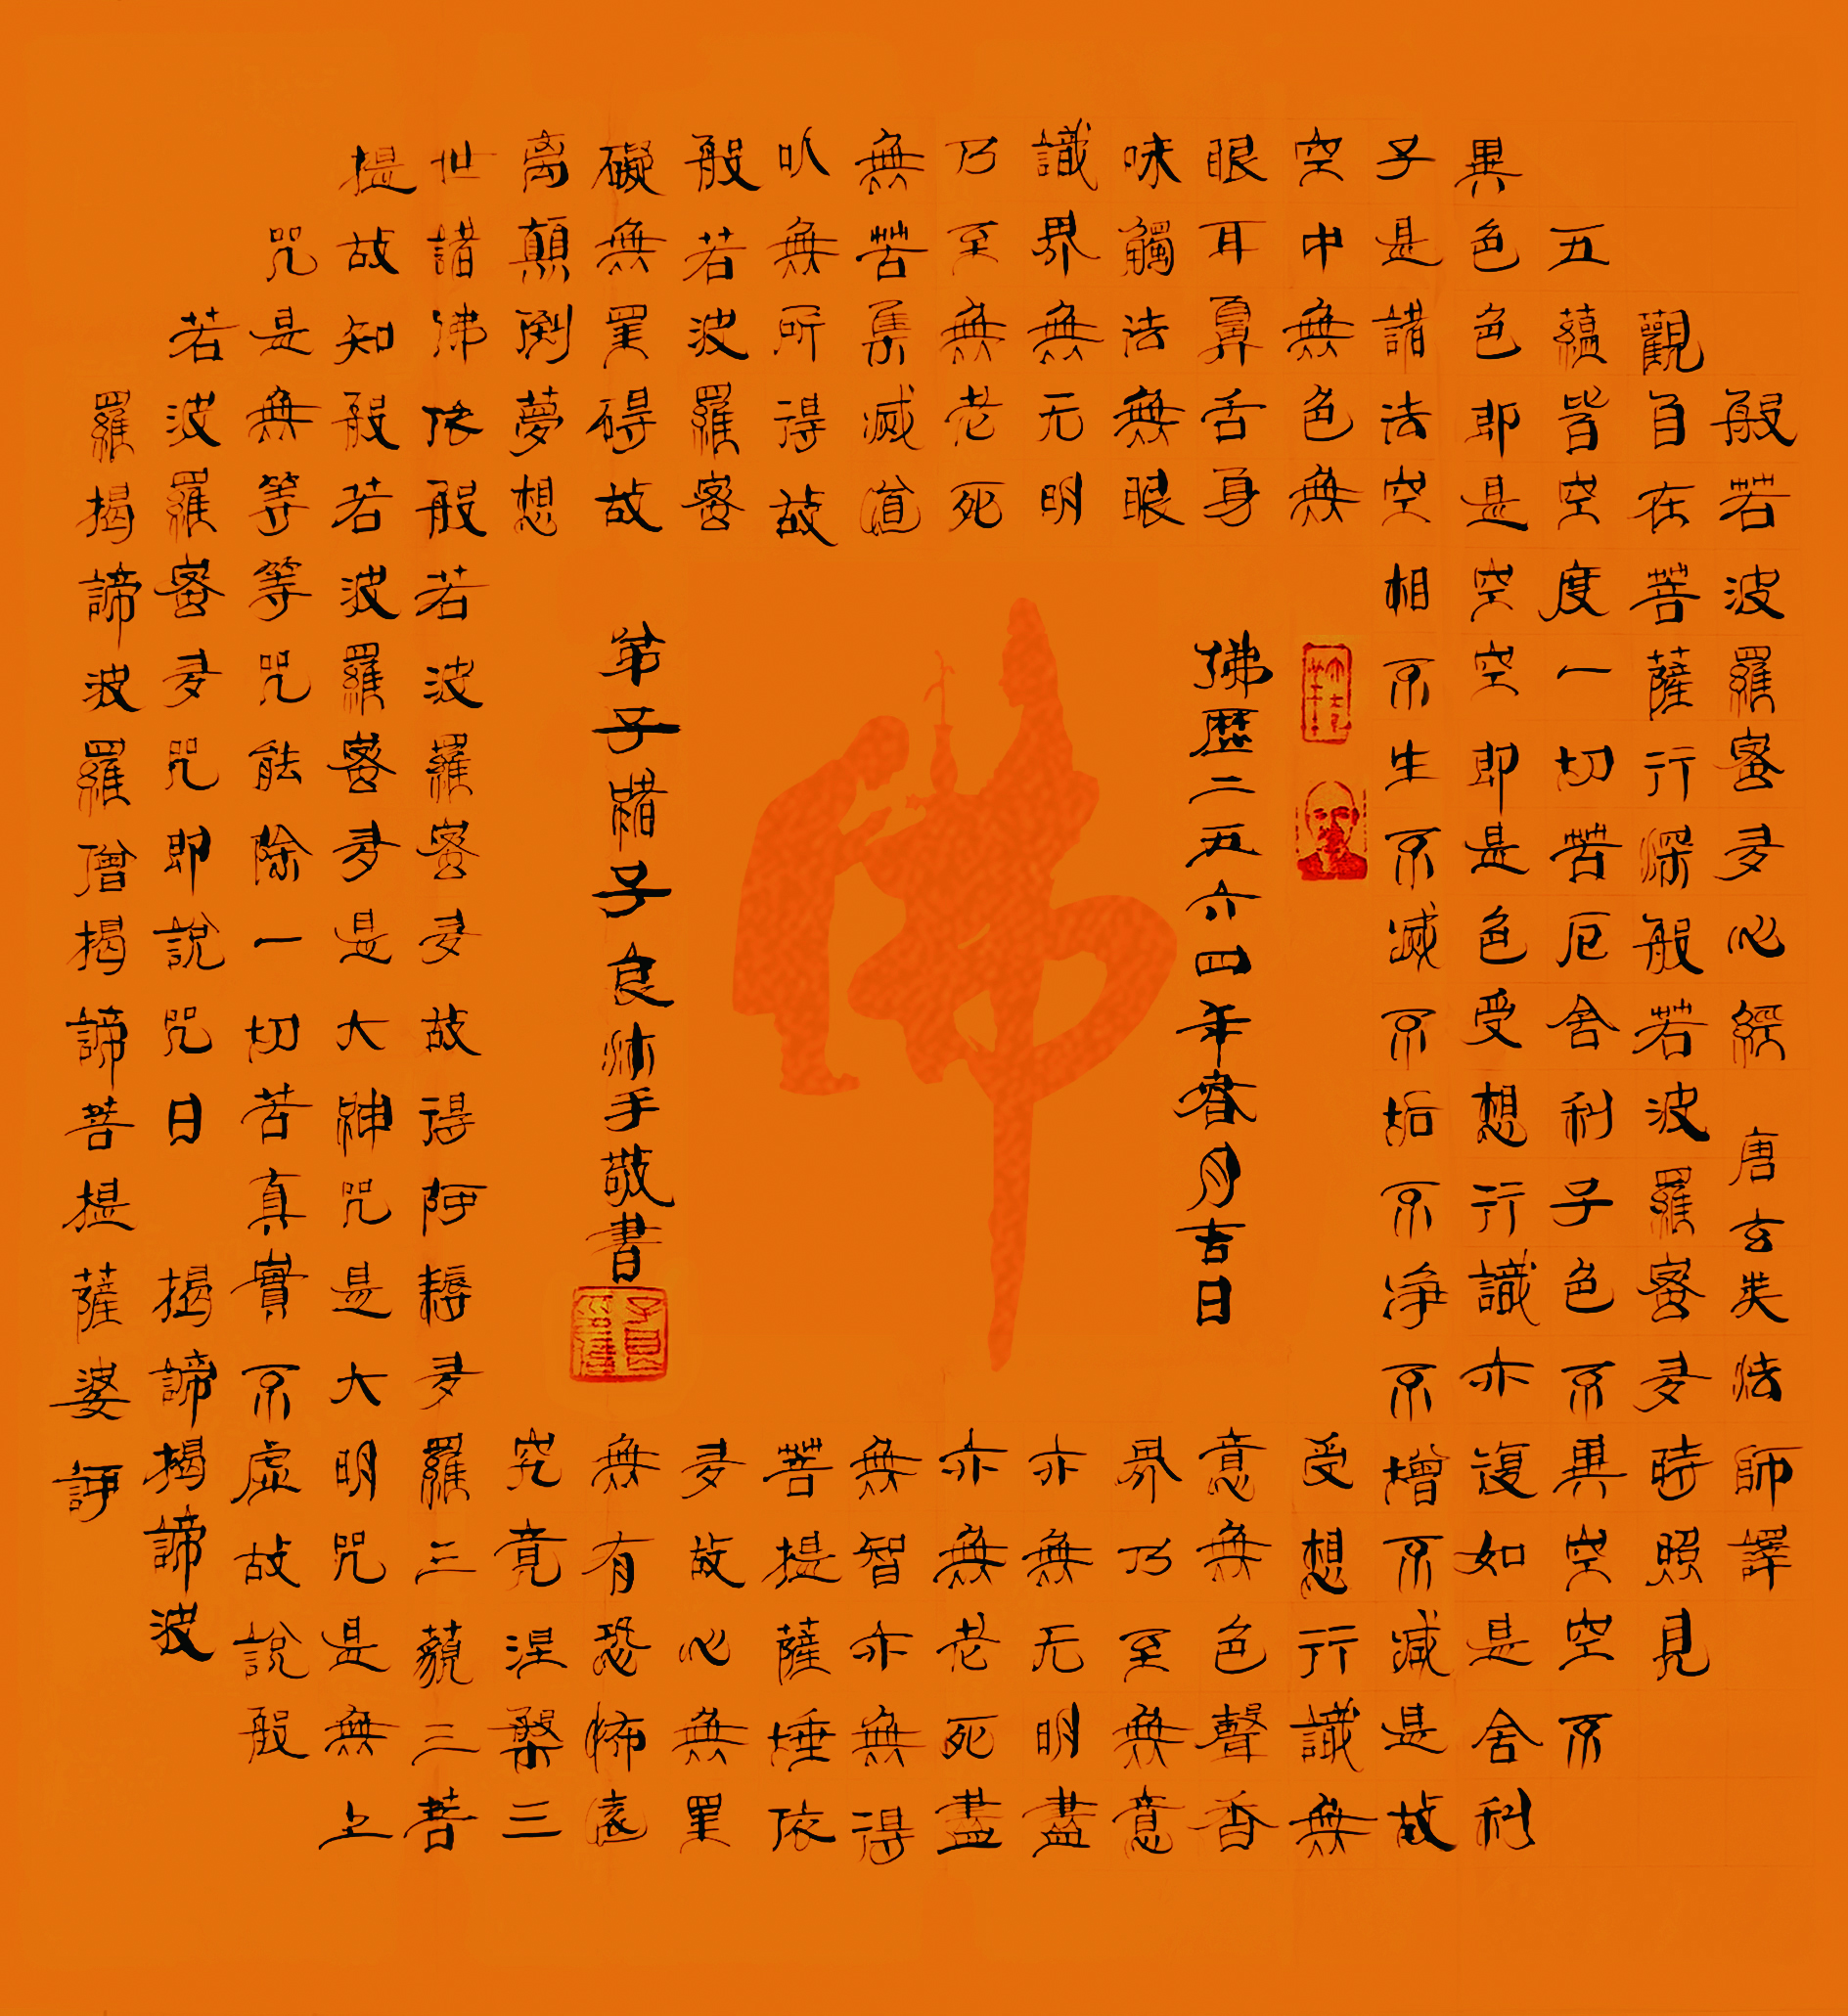 般若波羅蜜多心經 唐玄奘法師譯
觀自在菩薩行深般若波羅蜜多時照見
五蘊皆空度一切苦厄舍利子色不異空空不
異色色即是空空即是色受想行識亦復如是舍利
子是諸法空相不生不滅不垢不净不增不減是故
空中無色無受想行識無
眼耳鼻舌身意無色聲香
味觸法無眼界乃至無意
識界無无明亦無无明盡
乃至無老死亦無老死盡
無苦集滅道無智亦無得
以無所得故菩提薩埵依
般若波羅蜜多故心無罣
礙無罣碍故無有恐怖遠
离顛倒夢想究竟涅槃三
世諸佛依般若波羅蜜多故得阿耨多羅三藐三菩
提故知般若波羅蜜多是大神咒是大明咒是無上
咒是無等等咒能除一切苦真實不虛故說般
若波羅蜜多咒即說咒曰 揭諦揭諦波
羅揭諦波羅僧揭諦菩提薩婆訶
佛歷二五六四年春月吉日
弟子子良沐手敬書